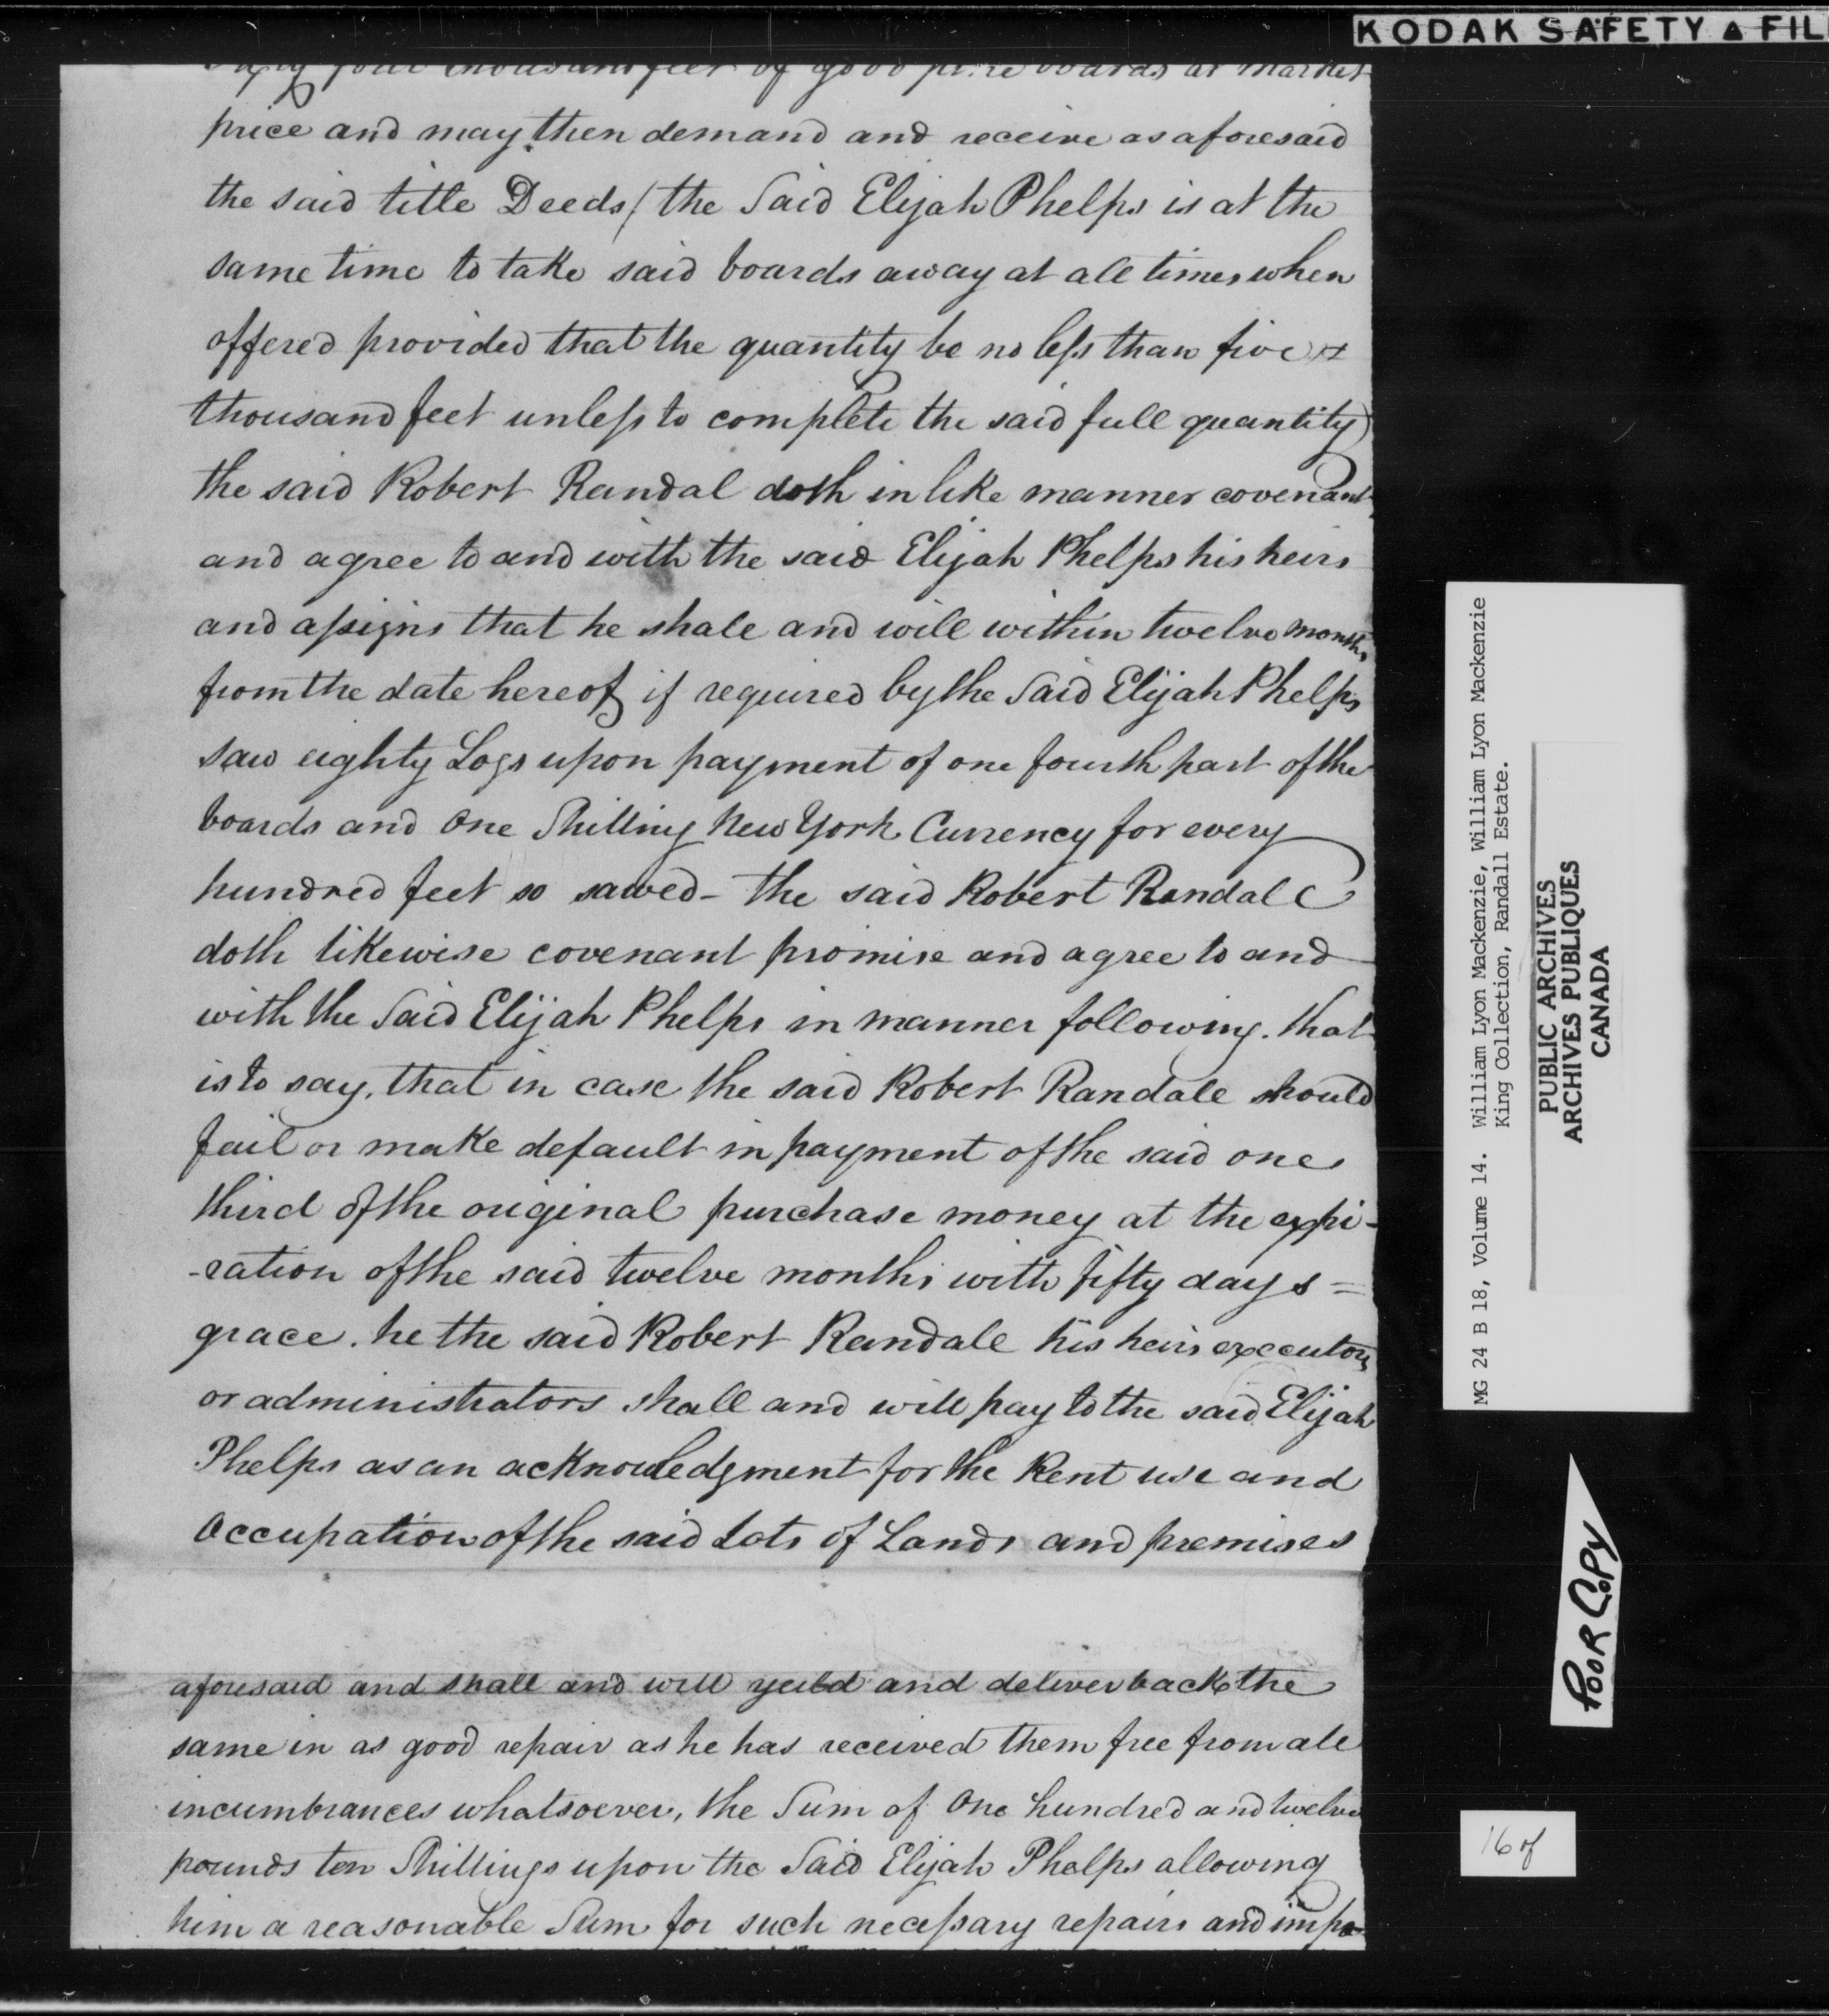 KODAK SAFETY ▲ FIL
four thousand feet of good pine boards at market
price and may then demand and receive as aforesaid
the said title Deeds / the Said Elijah Phelps is at the
same time to take said boards away at all times when
offered provided that the quantity be no less than five
thousand feet unless to complete the said full quantity)
the said Robert Randal doth in like manner covenant
and agree to and with the said Elijah Phelps his heirs
and assigns that he shall and will within twelve months
from the date hereof if required by the Said Elijah Phelps
saw eighty Logs upon payment of one fourth part of the
boards and One Shilling New York Currency for every
hundred feet so sawed - the said Robert Randall
doth likewise covenant promise and agree to and
with the Said Elijah Phelps in manner following. that
is to say, that in case the said Robert Randall should
fail or make default in payment of the said one
third of the original purchase money at the expi-
-ration of the said twelve months with fifty days =
grace. he the said Robert Randall his heirs executors
or administrators shall and will pay to the said Elijah
Phelps as an acknowledgment for the Rent use and
Occupation of the said Lots of Lands and premises
aforesaid and shall and will yeild and deliver back the
same in as good repair as he has received them free from all
incumbrances whatsoever, the Sum of One hundred and twelve
pounds ten Shillings upon the Said Elijah Phelps allowing
him a reasonable Sum for such necessary repairs and impo
MG 24 B 18, Volume 14. William Lyon Mackenzie, William Lyon Mackenzie
King Collection, Randall Estate.
PUBLIC ARCHIVES
ARCHIVES PUBLIQUES
CANADA
POOR COPY
16 of